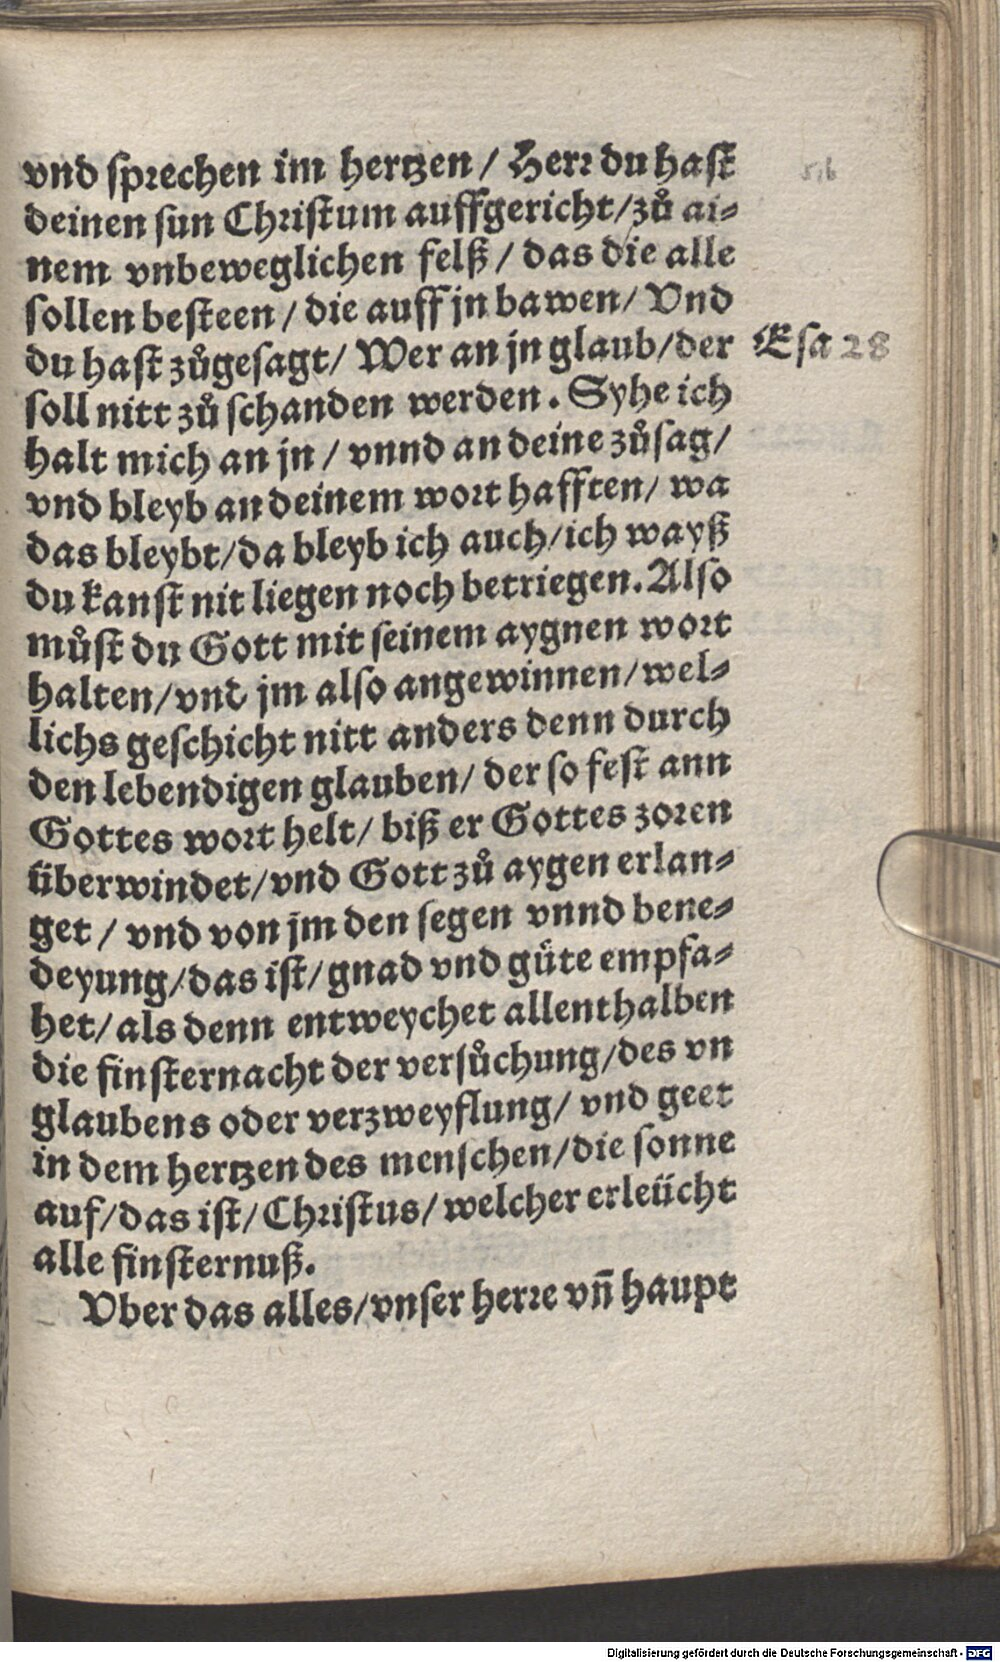 vnd sprechen im hertzen / Herr du hast
deinen sun Christum auffgericht/zů ai⸗
nem vnbeweglichen felß / das die alle
sollen besteen / die auff jn bawen/ Vnd
du hast zůgesagt/ Wer an jn glaub/der
Esa 28
soll nitt zů schanden werden. Syhe ich
halt mich an jn / vnnd an deine zůsag/
vnd bleyb an deinem wort hafften/ wa
das bleybt/da bleyb ich auch/ich wayß
du kanst nit liegen noch betriegen. Also
můst du Gott mit seinem aygnen wort
halten/vnd jm also angewinnen/wel⸗
lichs geschicht nitt anders denn durch
den lebendigen glauben/ der so fest ann
Gottes wort helt/ biß er Gottes zoren
überwindet/vnd Gott zů aygen erlan⸗
get / vnd von jm den segen vnnd bene⸗
deyung/das ist/gnad vnd güte empfa⸗
het/als denn entweychet allenthalben
die finsternacht der versůchung/des vn
glaubens oder verzweyflung/ vnd geet
in dem hertzen des menschen/die sonne
auf/das ist/Christus/welcher erleücht
alle finsternuß.
Vber das alles/vnser herre vn̄ haupt
Digitalisierung gefördert durch die Deutsche Forschungsgemeinschaft - DFG